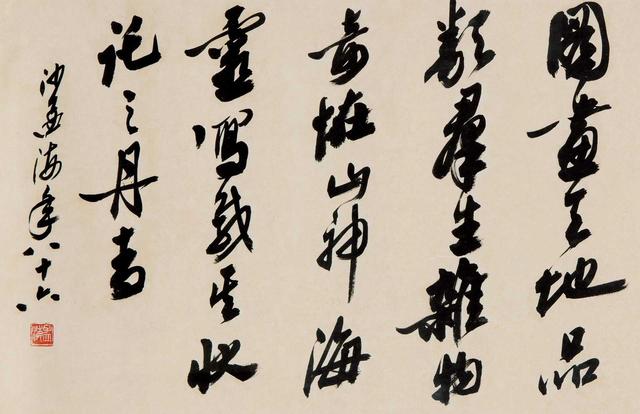 圖畫天地品
類羣生雜物
奇恠山神海
靈寫載其狀
託之丹青
沙孟海年八十六